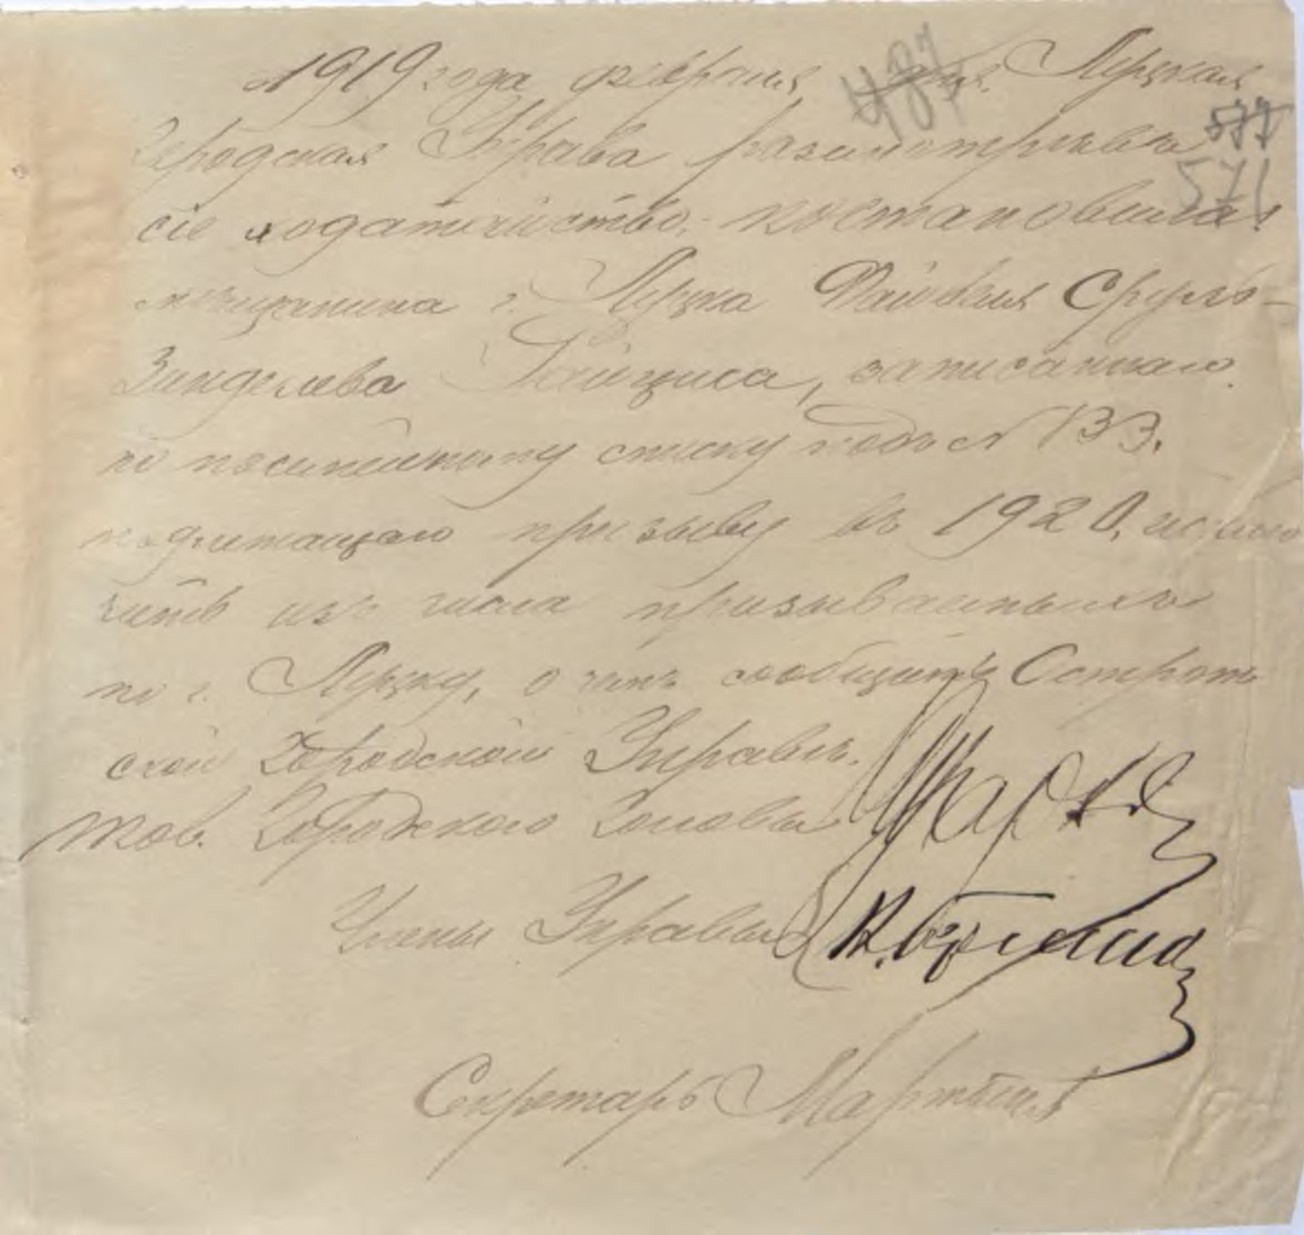 1919 года февраля дня. Луцкая
487
577
Городская Управа разсмотревъ
571
сіе ходатайство, постановила:
мещанина г. Луцка Файвеля Сруль-
Зинделева Гайциса, записаннаго
по посемейному списку подъ № 133,
подлежащаго призыву въ 1920, исклю
чить изъ числа призываемыхъ
по г. Луцку, о чемъ сообщить Острож
ской Городской Управе.
Тов. Городского Головы
Члены Управы
Секретарь